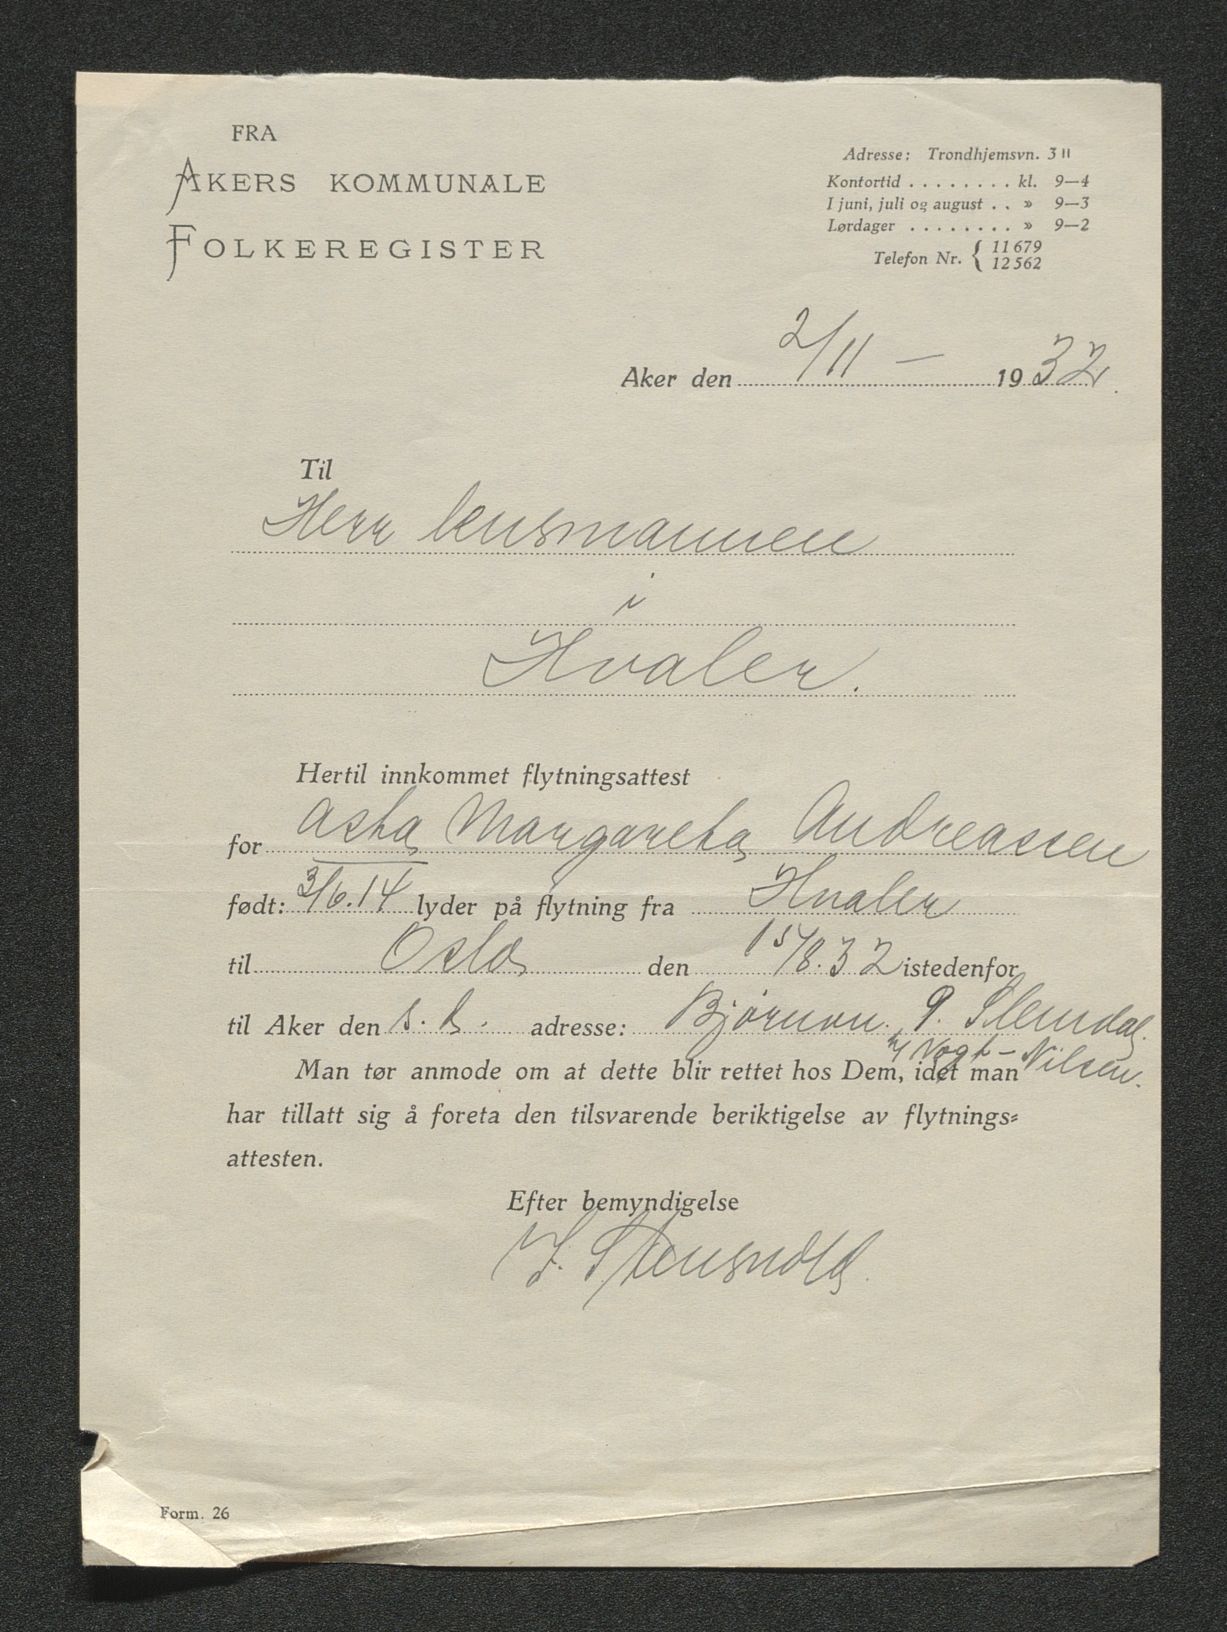 FRA
AKERS KOMMUNALE
FOLKEREGISTER
Adresse: Trondhjemsvn. 3 II
Kontortid . . . . . . . . kl. 9—4
I juni, juli og august . . » 9—3
Lørdager . . . . . . . . » 9—2
Telefon Nr. { 11679
12562
Aker den 2/11 — 1932
Til
Herr lensmannen
i
Hvaler.
Hertil innkommet flytningsattest
for Asta Margareta Andreassen
født: 3/6.14 lyder på flytning fra Hvaler
til Oslo den 15/8.32 istedenfor
til Aker den s. d. adresse: Bjørnvn. 9. Slemdal.
h/ Vogt-Nilsen.
Man tør anmode om at dette blir rettet hos Dem, idet man
har tillatt sig å foreta den tilsvarende beriktigelse av flytnings-
attesten.
Efter bemyndigelse
Form. 26